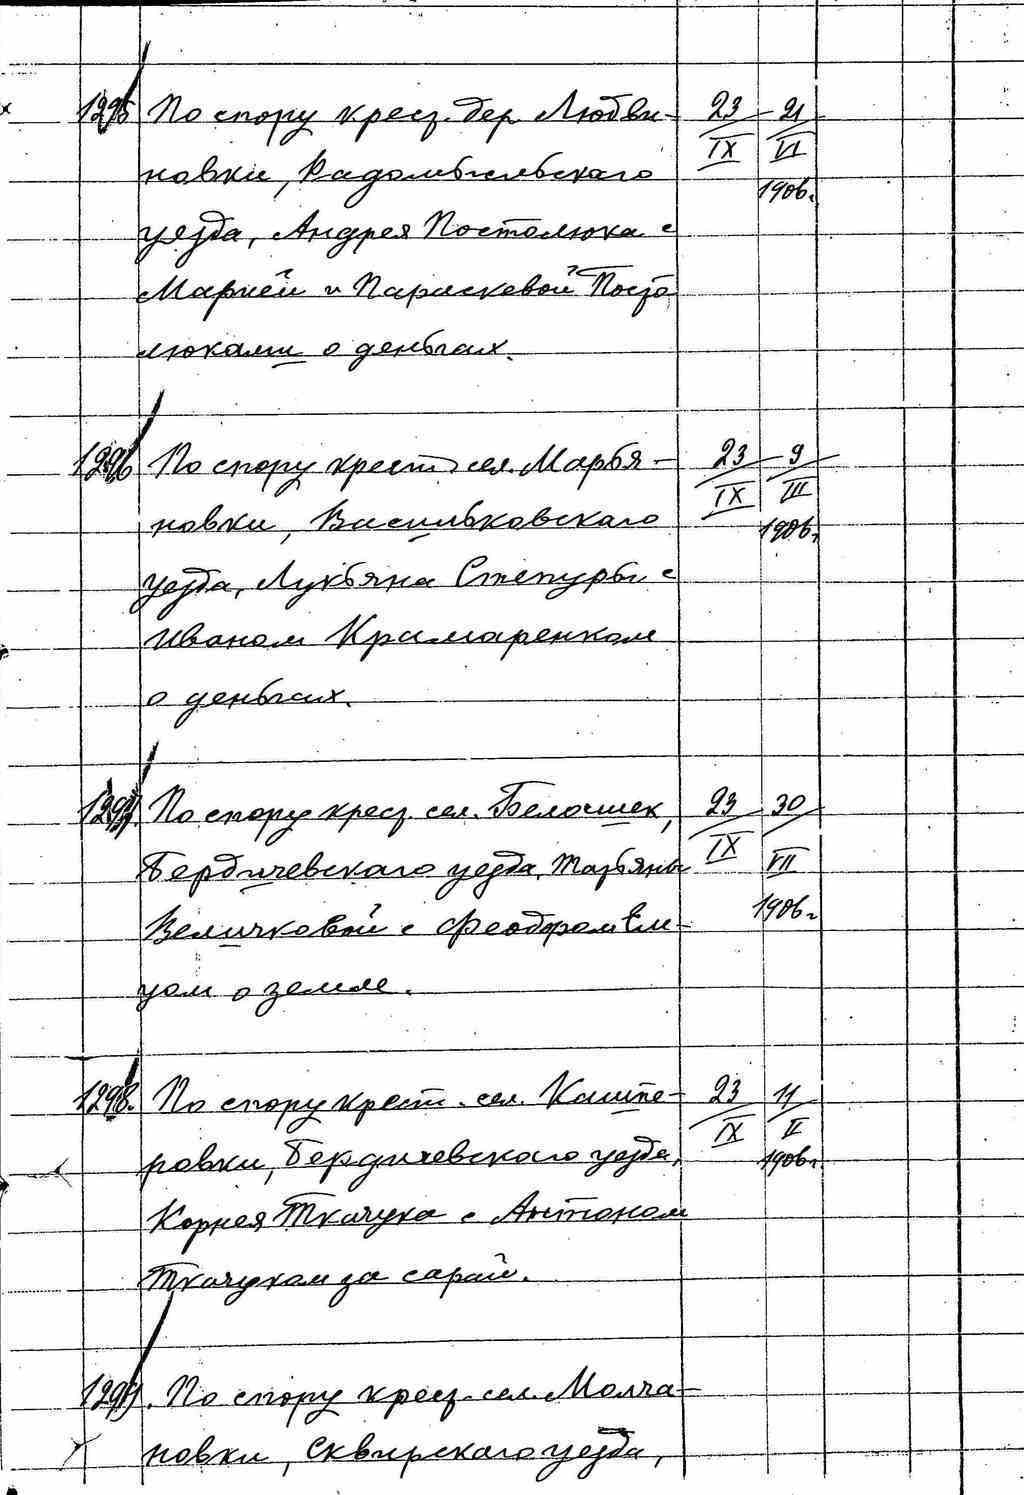 1295 По спору крест. дер. Любви- 23 21
новки, Радомысльскаго IX VI
уезда, Андрея Постолюка с 1906г.
Марией и Параскевой Посто
люками о деньгах.
1296 По спору крест. сел. Марья- 23 9
новки, Васильковскаго IX III
уезда, Лукьяна Степуры с 1906г.
Иваном Крамаренком
о деньгах.
1297. По спору крест. сел. Белочшек, 23 30
Бердичевскаго уезда, Татьяны IX VII
Величковой с Феодором 1906г.
цом о земле.
1298. По спору крест. сел. Кашпе- 23 11
ровки, Бердичевскаго уезда, IX II
Корнея Ткачука с Антоном 1906г.
Ткачуком за сарай.
1299. По спору крест. сел. Молча-
новки, Сквирскаго уезда,